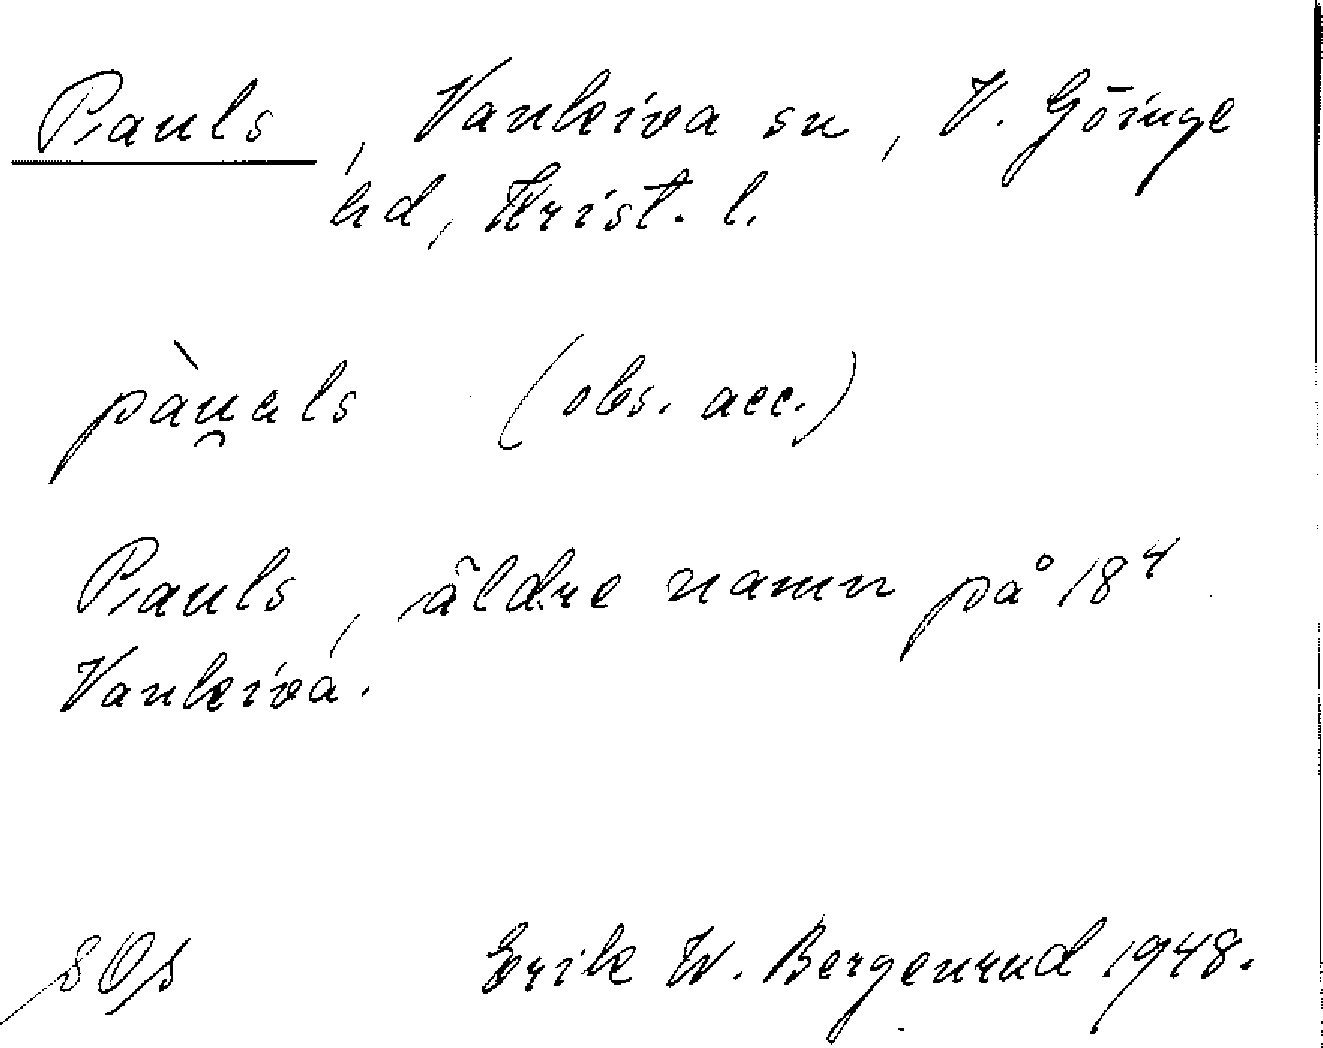 Pauls, Vankiva sn, V. Göinge
hd, Krist. l.
pàu̯als (obs. acc.)
Pauls, äldre namn på 18⁴
Vankiva.
Erik W. Bergenrud 1948.